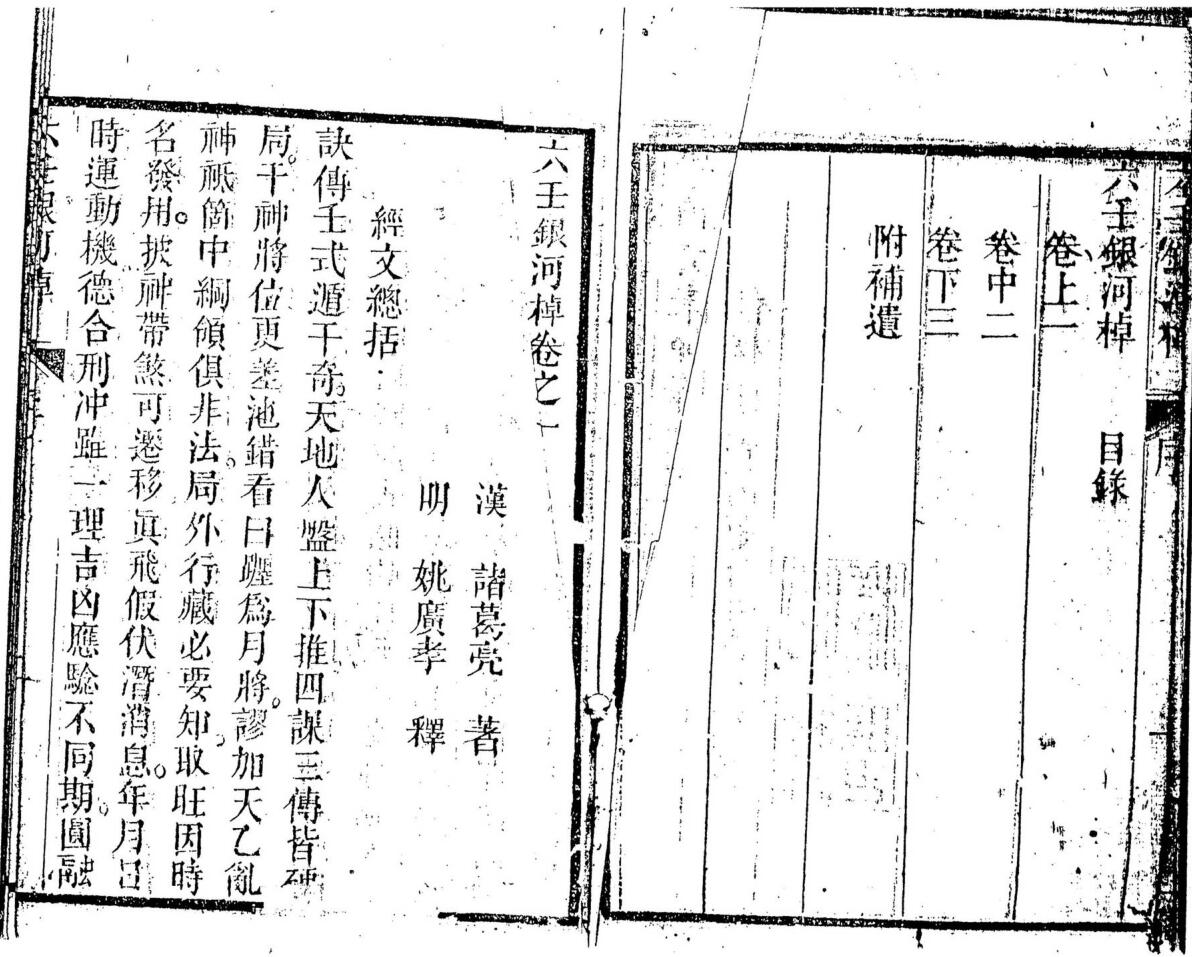 六壬銀河棹 目錄
卷上一
卷中二
卷下三
附補遺
六壬銀河棹卷之一
漢 諸葛亮 著
明 姚廣孝 釋
經文總括
訣傳壬式遁干奇。天地人盤上下推四課三傳皆
局。干神將位更差池錯看日躔爲月將。謬加天乙亂
神祇箇中綱領俱非法。局外行藏必要知。取旺因時
名發用。披神帶煞可遷移眞飛假伏潛消息。年月日
時運動機德合刑冲雖一理吉凶應騐不同期。圓融